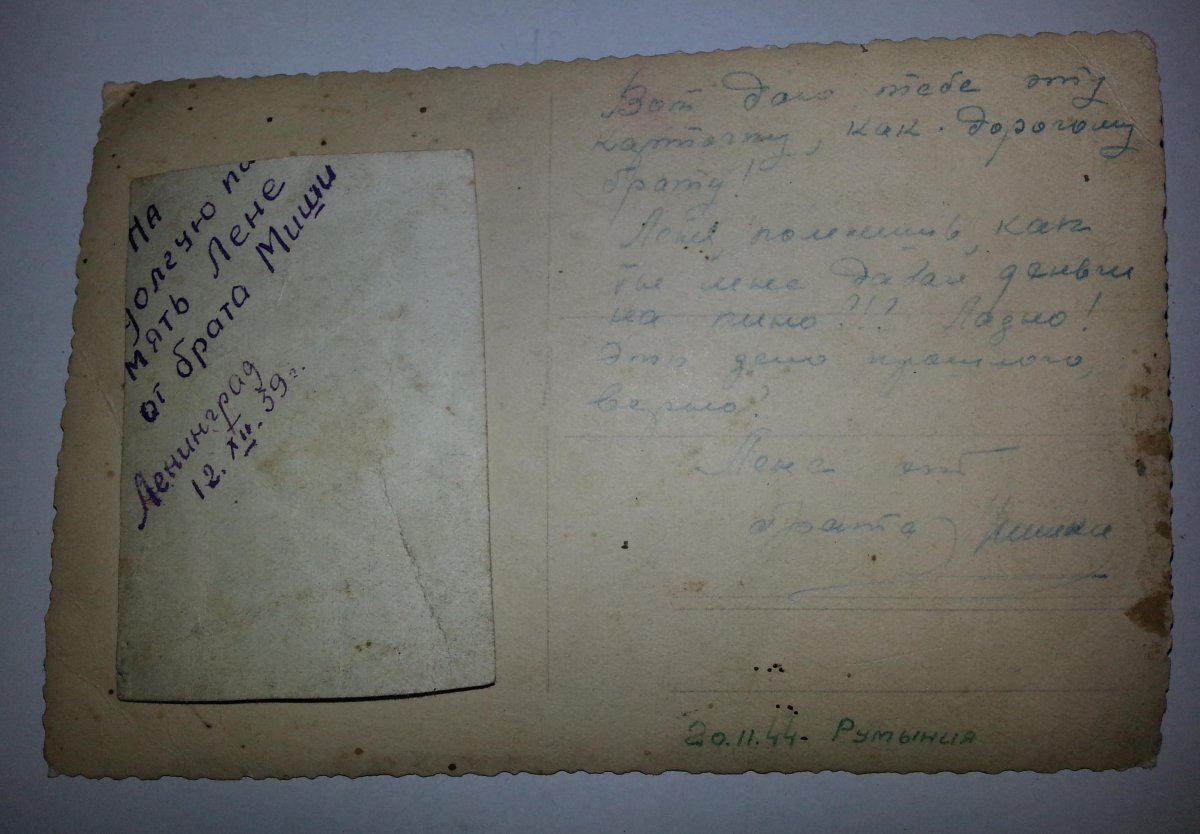 На
долгую па
мять Лене
от брата Миши
Ленинград
12. XII. 39 г.
Вот даю тебе эту
карточку, как дорогому
брату!
Леня, помнишь, как
ты мне давал деньги
на кино?!? Ладно!
Это дело прошлого,
верно?
Лене от
брата Мишки
20.11.44 - Румыния